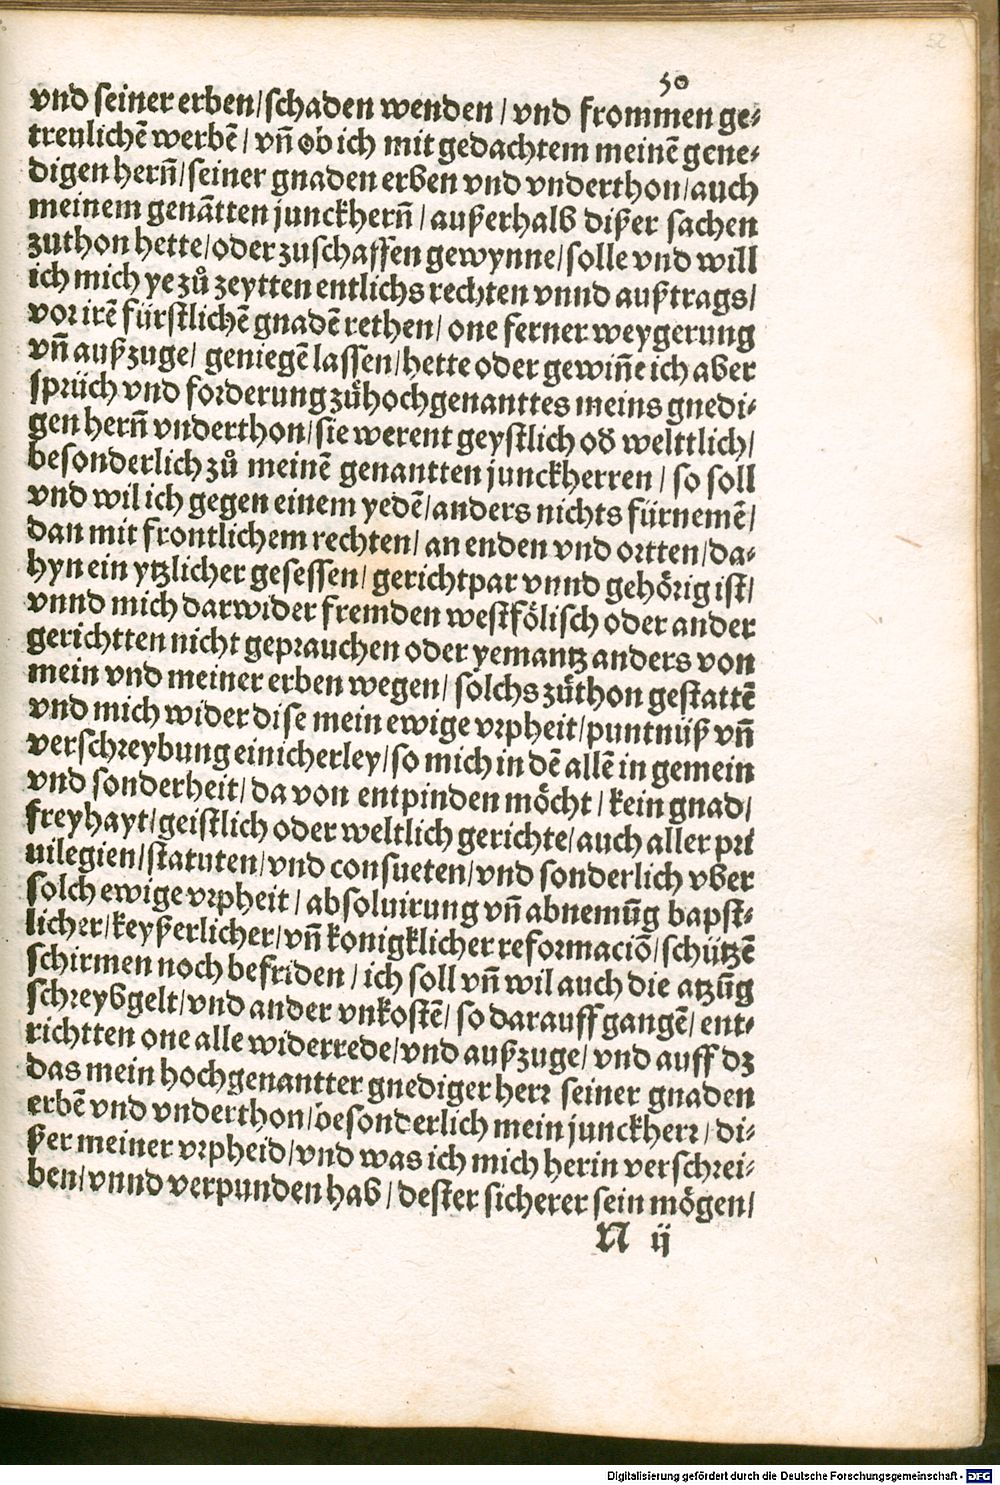 52
50
vnd seiner erben/schaden wenden/ vnd frommen ge⸗
treulichē werbē/ vn̄ ob ich mit gedachtem meinē gene⸗
digen hern̄/seiner gnaden erben vnd vnderthon/auch
meinem genātten junckhern̄/ außerhalb dißer sachen
zuthon hette/oder zuschaffen gewynne/solle vnd will
ich mich ye zů zeytten entlichs rechten vnnd außtrags/
vor irē fürstlichē gnadē rethen/ one ferner weygerung
vn̄ außzuge/ geniegē lassen/hette oder gewin̄e ich aber
sprüch vnd forderung zůhochgenanttes meins gnedi⸗
gen hern̄ vnderthon/sie werent geystlich od̕ welttlich/
besonderlich zů meinē genantten junckherren/ so soll
vnd wil ich gegen einem yedē/anders nichts fürnemē/
dan mit frontlichem rechten/ an enden vnd ortten/da⸗
hyn ein ytzlicher gesessen/ gerichtpar vnnd gehörig ist/
vnnd mich darwider fremden westfölisch oder ander
gerichtten nicht geprauchen oder yemantz anders von
mein vnd meiner erben wegen/ solchs zůthon gestattē
vnd mich wider dise mein ewige vrpheit/puntnüß vn̄
verschreybung einicherley/so mich in dē allē in gemein
vnd sonderheit/ da von entpinden möcht/ kein gnad/
freyhayt/geistlich oder weltlich gerichte/auch aller pri
uilegien/statuten/vnd consueten/vnd sonderlich vber
solch ewige vrpheit/ absoluirung vn̄ abnemūg bapst⸗
licher/keyßerlicher/vn̄ konigklicher reformaciō/schützē
schirmen noch befriden/ ich soll vn̄ wil auch die atzūg
schreybgelt/vnd ander vnkostē/ so darauff gangē/ ent⸗
richtten one alle widerrede/vnd außzuge/ vnd auff dz
das mein hochgenantter gnediger herr seiner gnaden
erbē vnd vnderthon/besonderlich mein junckherr/ di⸗
ßer meiner vrpheid/vnd was ich mich herin verschrei⸗
ben/vnnd verpunden hab/ dester sicherer sein mögen/
N ij
Digitalisierung gefördert durch die Deutsche Forschungsgemeinschaft - DFG